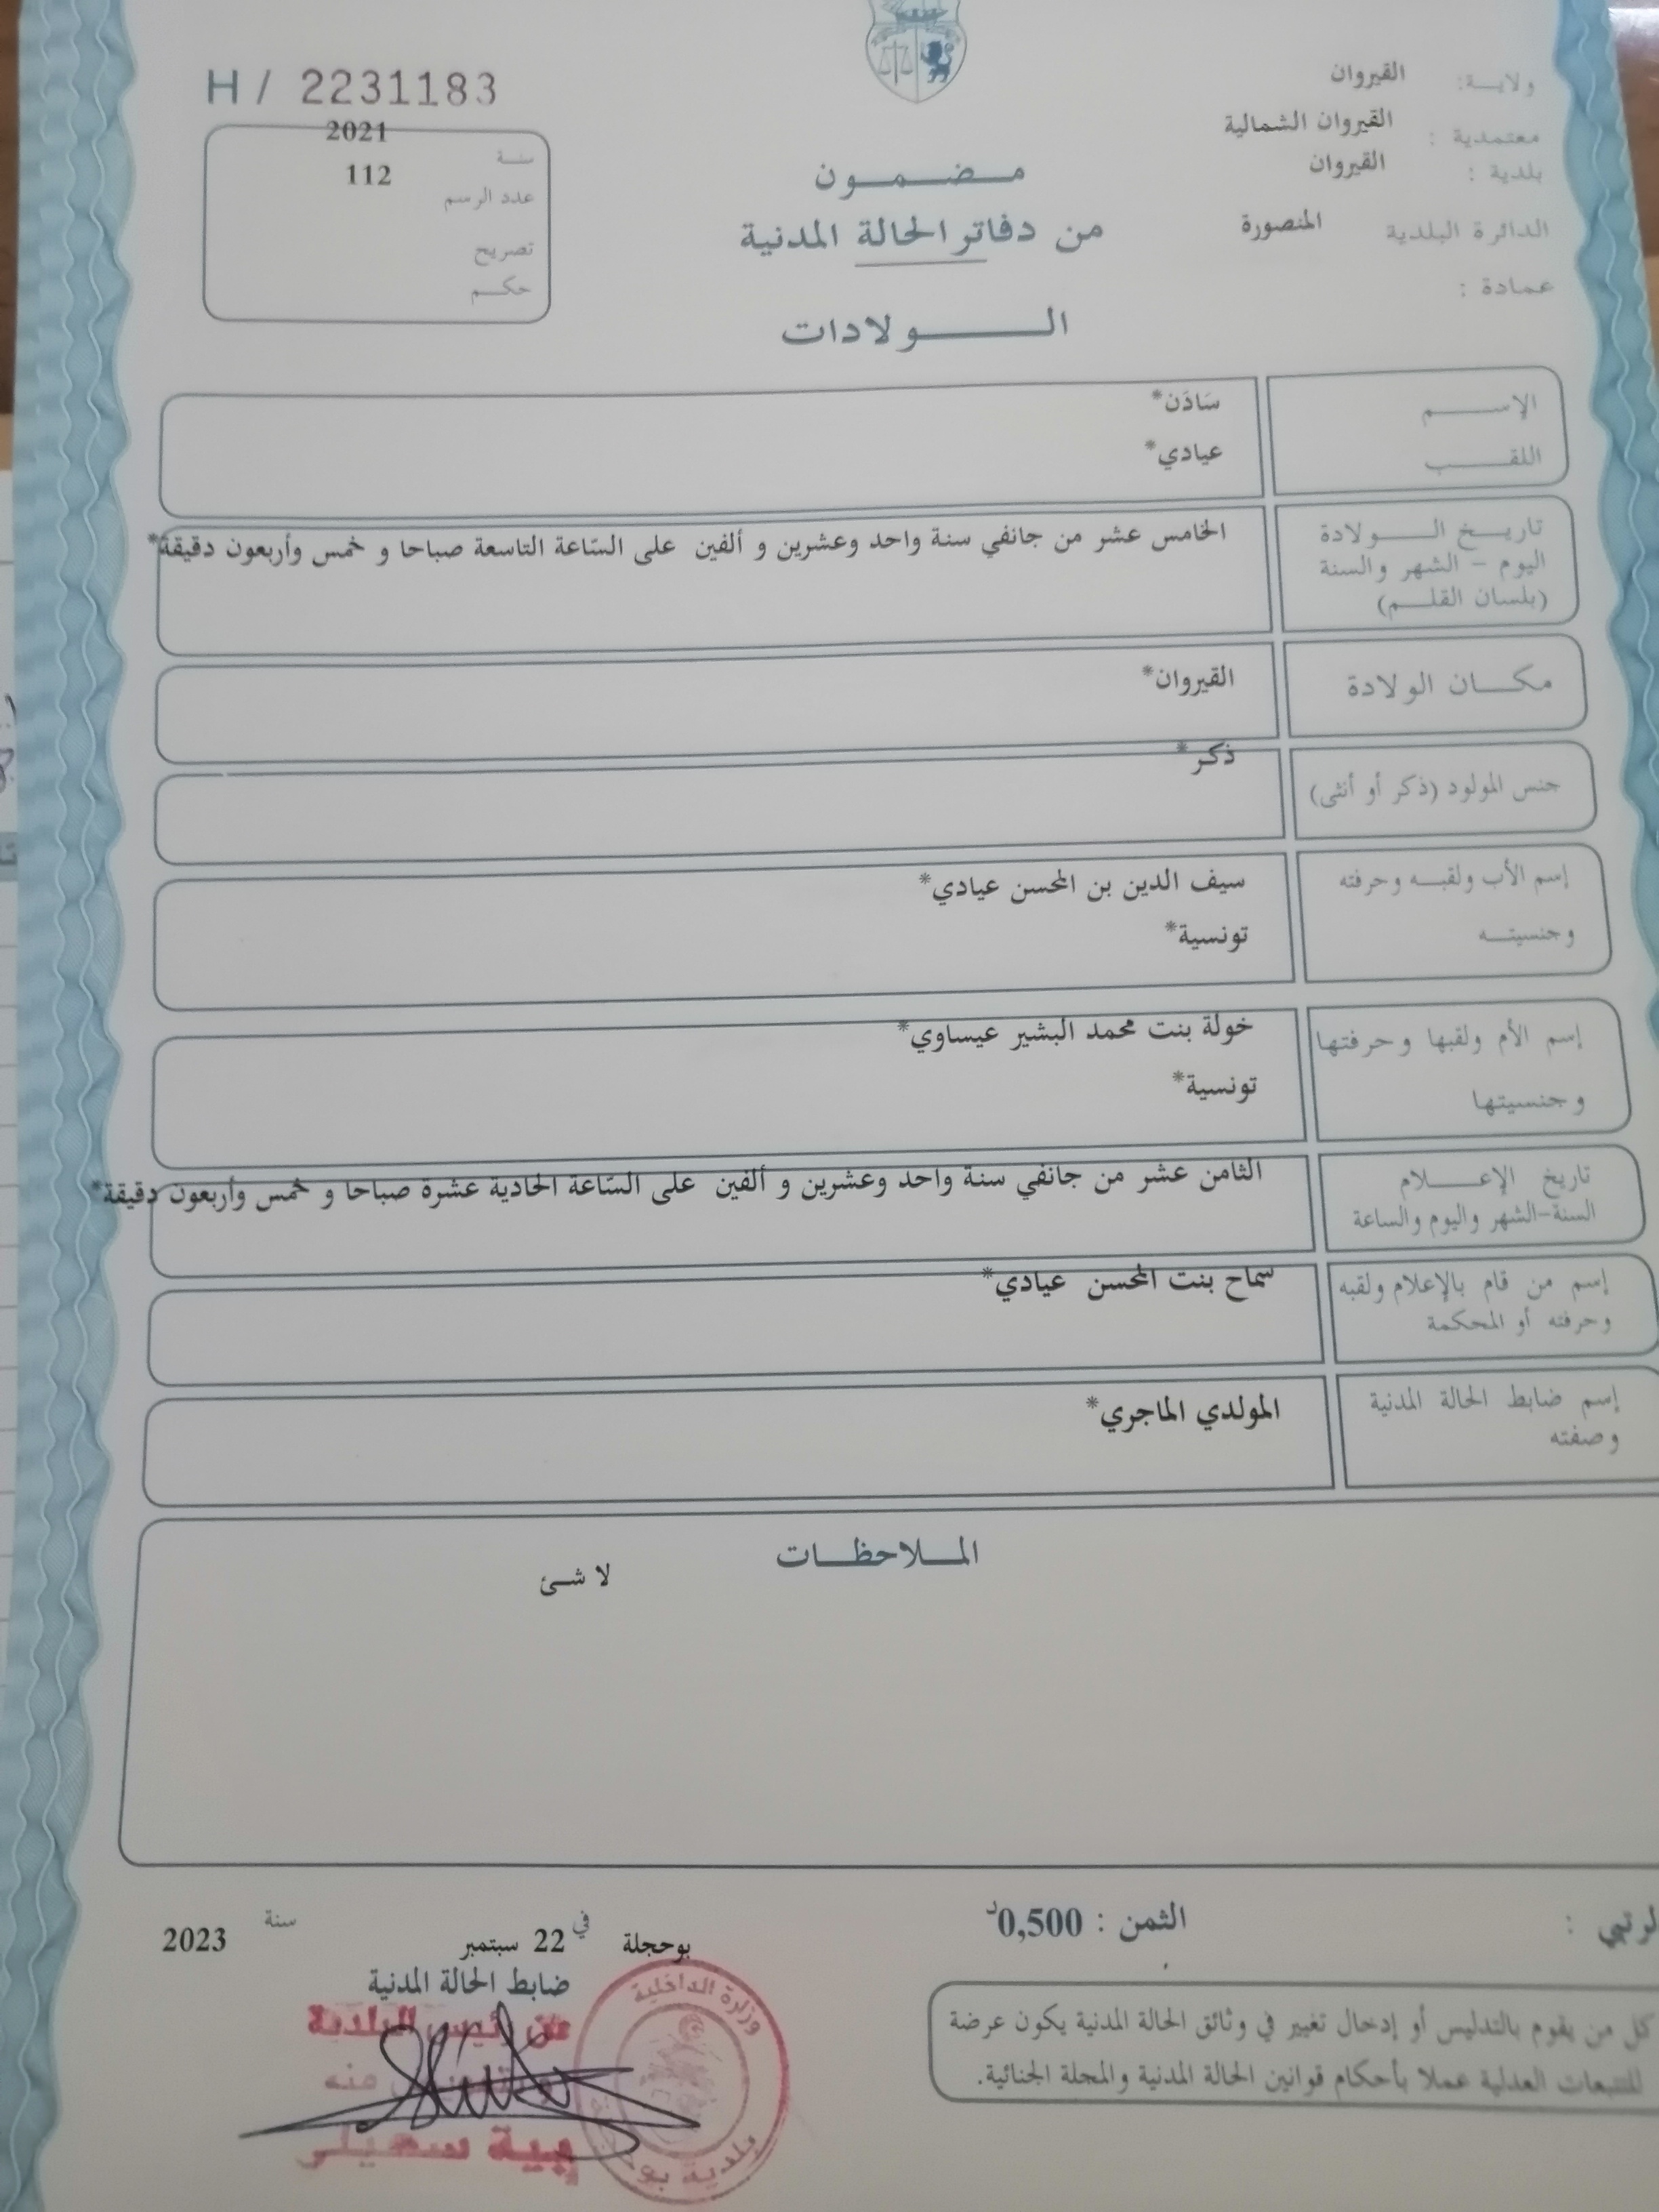 H/ 2231183
ولايـة: القيروان
معتمدية : القيروان الشمالية
بلدية : القيروان
الدائرة البلدية المنصورة
عمادة :
سنـة 2021
عدد الرسم 112
تصريح
حكـم
مـضـمـون
من دفاتر الحالة المدنية
الـولادات
الإسـم سَادَن*
اللقـب عيادي*
تاريـخ الـولادة الخامس عشر من جانفي سنة واحد وعشرين و ألفين على السّاعة التاسعة صباحا و خمس وأربعون دقيقة*
اليوم - الشهر والسنة
(بلسان القلـم)
مكـان الولادة القيروان*
جنس المولود (ذكر أو أنثى) ذكر*
إسم الأب ولقبـه وحرفته سيف الدين بن المحسن عيادي*
وجنسيتـه تونسية*
إسم الأم ولقبها وحرفتها خولة بنت محمد البشير عيساوي*
وجنسيتها تونسية*
تاريخ الإعـلام الثامن عشر من جانفي سنة واحد وعشرين و ألفين على السّاعة الحادية عشرة صباحا و خمس وأربعون دقيقة*
السنة-الشهر واليوم والساعة
إسم من قام بالإعلام ولقبه سماح بنت المحسن عيادي*
وحرفته أو المحكمة
إسم ضابط الحالة المدنية المولدي الماجري*
وصفته
المـلاحظـات
لا شـئ
الثمن : 0,500د
بوحجلة في 22 سبتمبر سنة 2023
ضابط الحالة المدنية
عن رئيس البلدية
منه
سهيلي
وزارة الداخلية
بلدية بو
كل من يقوم بالتدليس أو إدخال تغيير في وثائق الحالة المدنية يكون عرضة
للتتبعات العدلية عملا بأحكام قوانين الحالة المدنية والمجلة الجنائية.